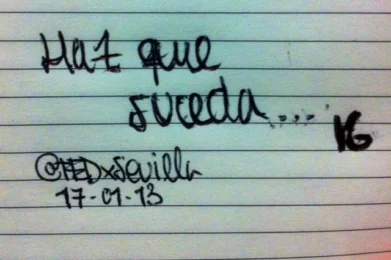 Haz que
suceda...
IG
@TEDxSevilla
17-01-13